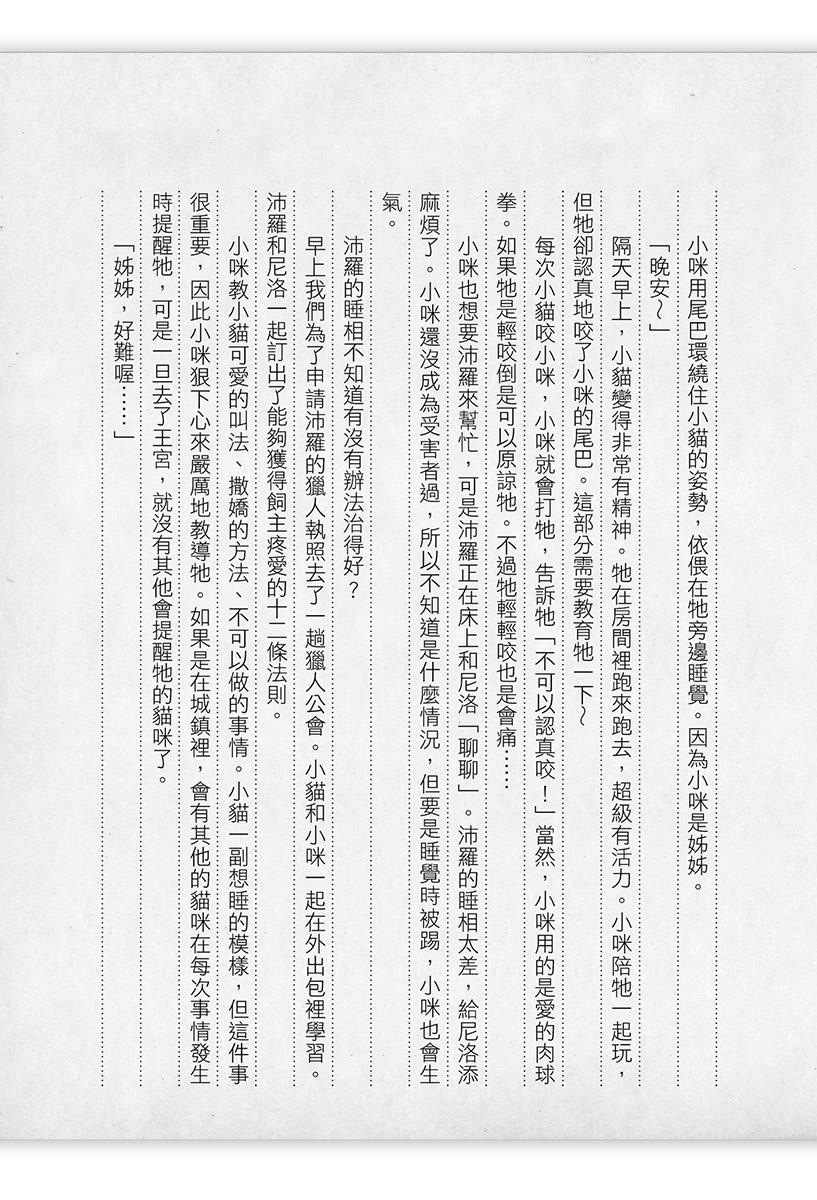 小咪用尾巴環繞住小貓的姿勢，依偎在牠旁邊睡覺。因為小咪是姊姊。
「晚安～」
隔天早上，小貓變得非常有精神。牠在房間裡跑來跑去，超級有活力。小咪陪牠一起玩，
但牠卻認真地咬了小咪的尾巴。這部分需要教育牠一下～
每次小貓咬小咪，小咪就會打牠，告訴牠「不可以認真咬！」當然，小咪用的是愛的肉球
拳。如果牠是輕咬倒是可以原諒牠。不過牠輕輕咬也是會痛……
小咪也想要沛羅來幫忙，可是沛羅正在床上和尼洛「聊聊」。沛羅的睡相太差，給尼洛添
麻煩了。小咪還沒成為受害者過，所以不知道是什麼情況，但要是睡覺時被踢，小咪也會生
氣。
沛羅的睡相不知道有沒有辦法治得好？
早上我們為了申請沛羅的獵人執照去了一趟獵人公會。小貓和小咪一起在外出包裡學習。
沛羅和尼洛一起訂出了能夠獲得飼主疼愛的十二條法則。
小咪教小貓可愛的叫法、撒嬌的方法、不可以做的事情。小貓一副想睡的模樣，但這件事
很重要，因此小咪狠下心來嚴厲地教導牠。如果是在城鎮裡，會有其他的貓咪在每次事情發生
時提醒牠，可是一旦去了王宮，就沒有其他會提醒牠的貓咪了。
「姊姊，好難喔……」